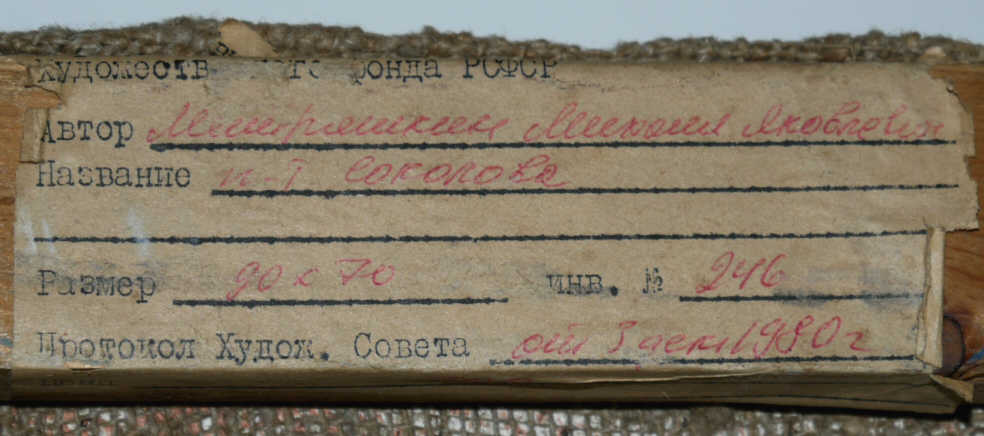 Художеств фонда РСФСР
Автор Митряшкин Михаил Яковлевич
Название п-т Соколова
Размер 90 х 70 инв. № 246
Протокол Худож. Совета от 3 дек 1980 г